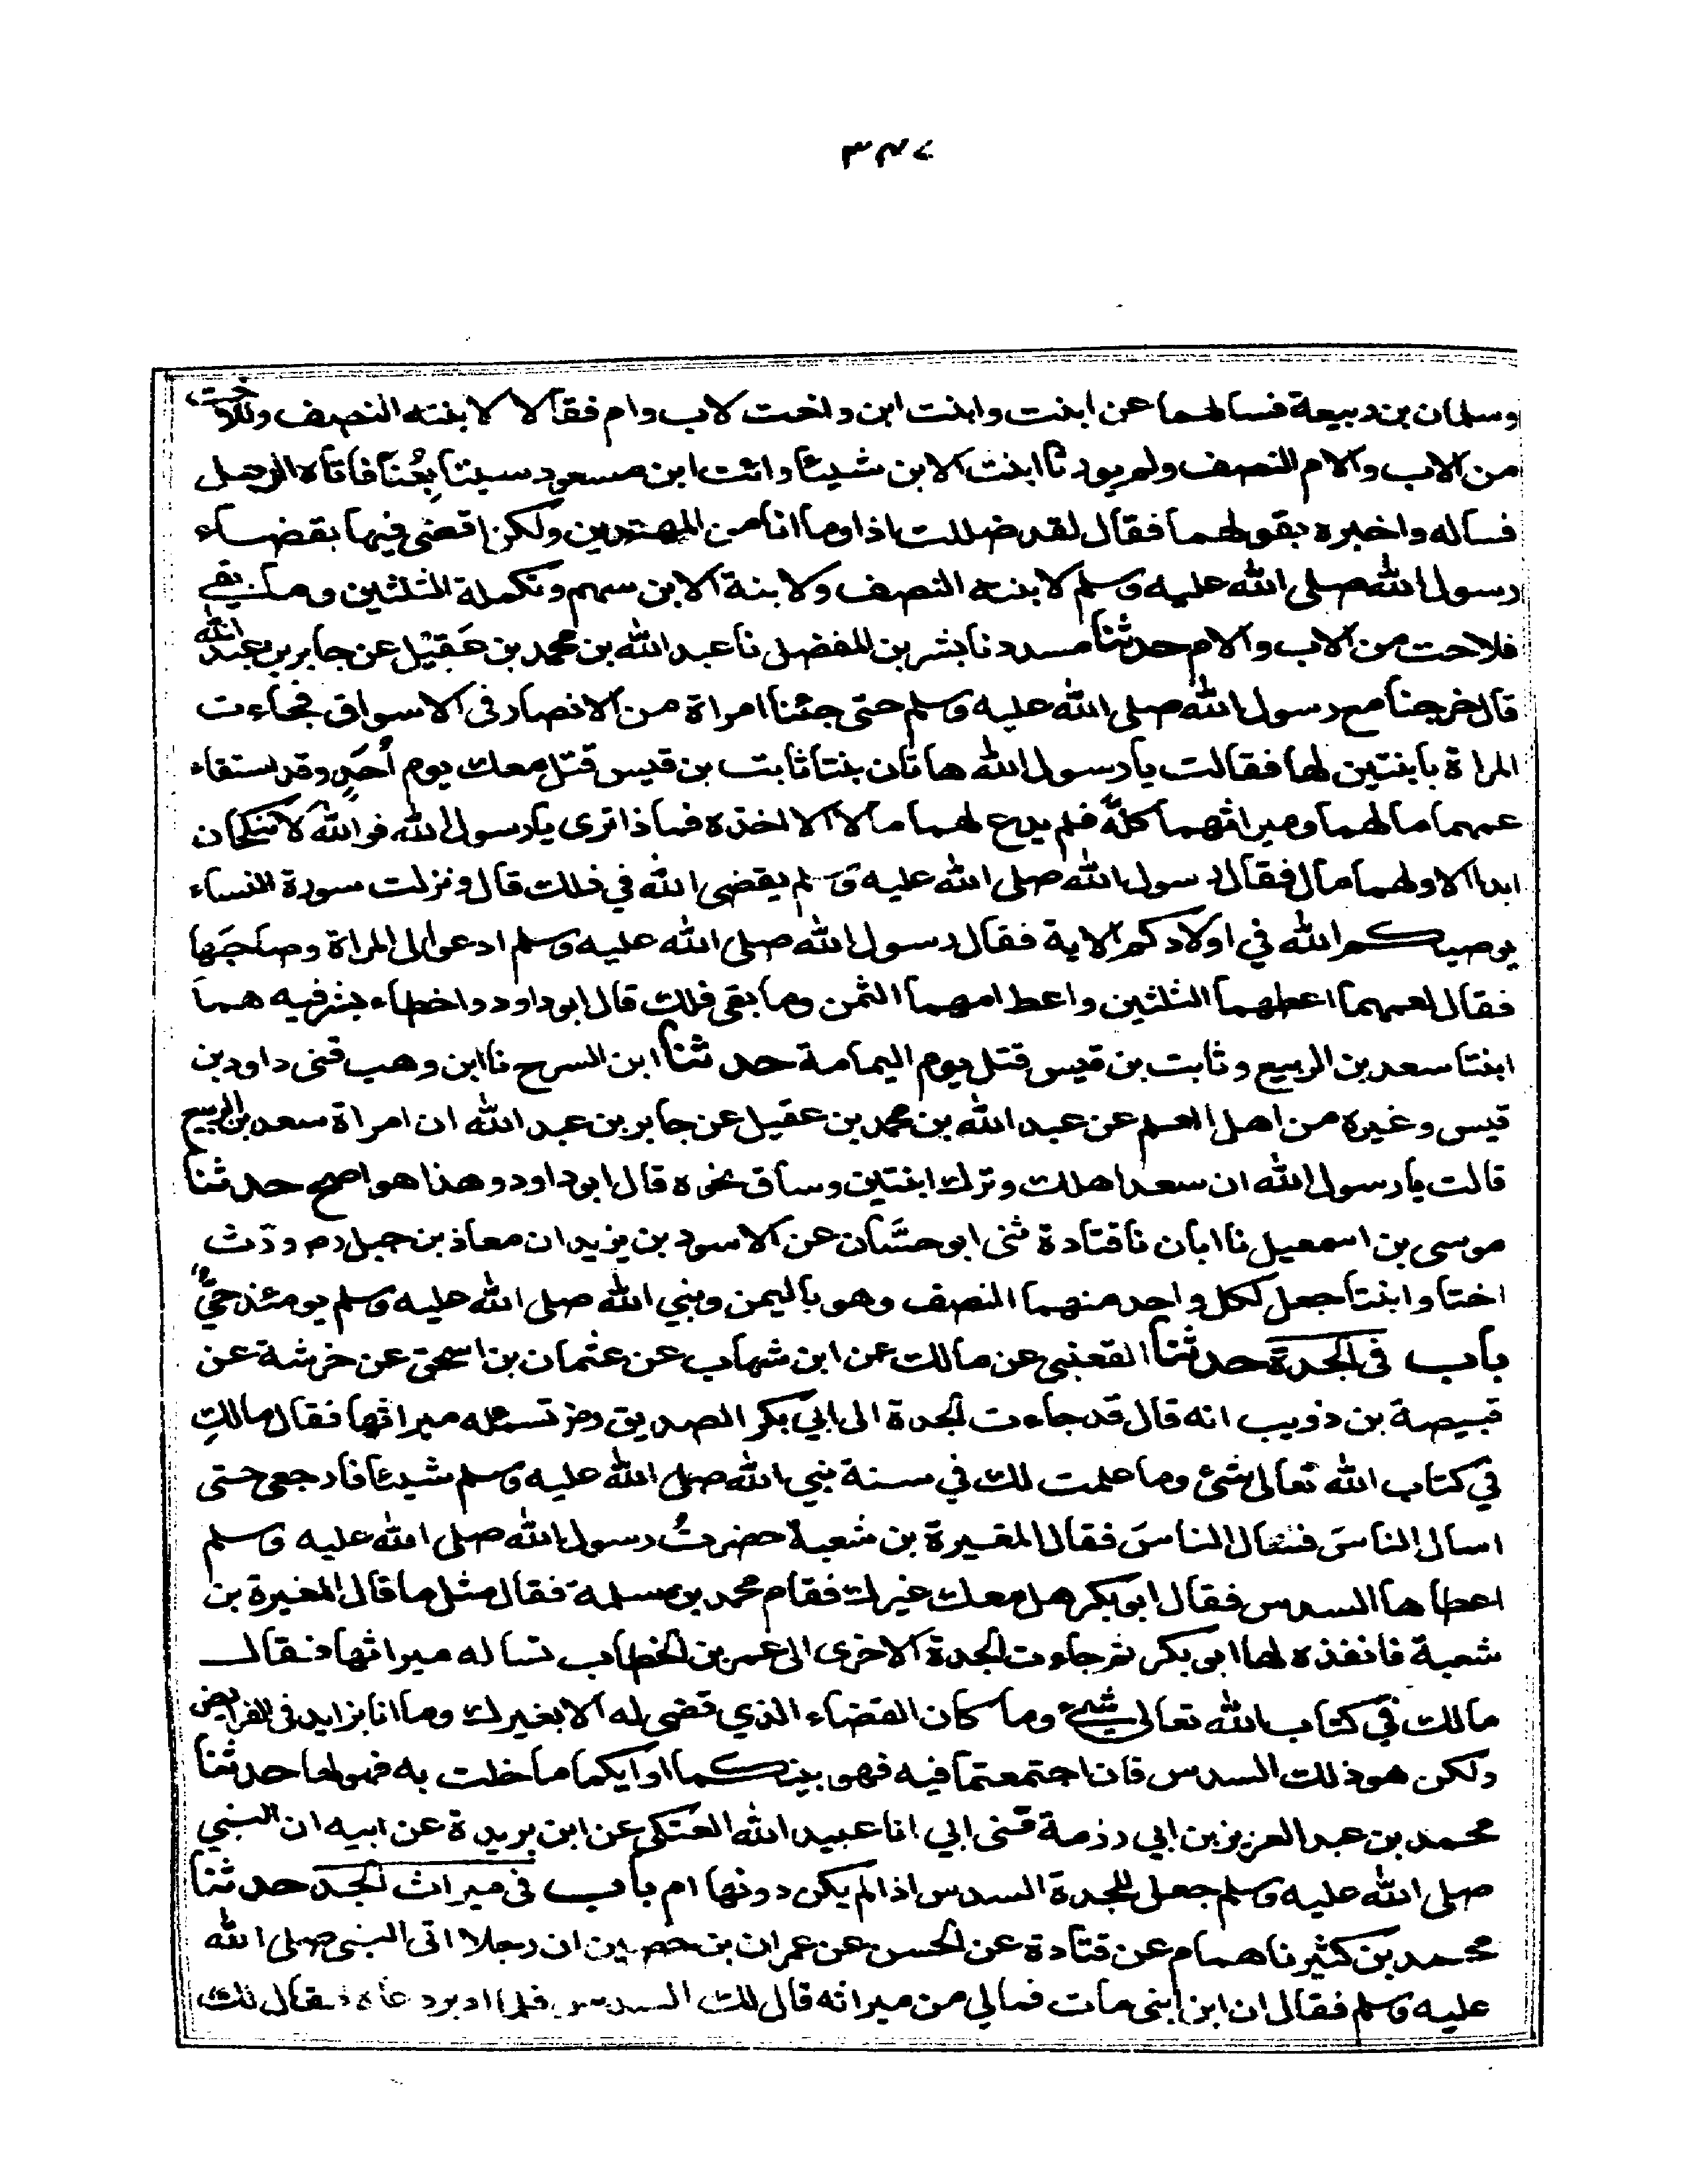 ٣٤٧
وسلمان بن ربيعة فسالهما عن ابنت وابنت ابن واخت لاب وام فقالا لابنته النصف وللاخت
من الاب والام النصف ولم يورثا ابنت الابن شيئا وائت ابن مسعود سيتابِعُنا فاتاه الرجل
فساله واخبره بقولهما فقال لقد ضللت اذا وما انا من المهتدين ولكن اقضى فيها بقضاء
رسول الله صلى الله عليه وسلم لابنته النصف ولابنة الابن سهم وتكملة الثلثين وما بقى
فلاخت من الاب والام حدثنا مسدد نا بشر بن المفضل نا عبد الله بن محمد بن عَقيْل عن جابر بن عبد الله
قال خرجنا مع رسول الله صلى الله عليه وسلم حتى جئنا امراة من الانصار فى الاسواق فجاءت
المراة بابنتين لها فقالت يا رسول الله هاتان بنتا ثابت بن قيس قتل معك يوم أُحَدٍ وقد استفاء
عمهما مالهما وميراثهما كلَّه فلم يدع لهما مالا الا اخذه فماذا ترى يا رسول الله فو الله لا تنكحان
ابدا الا ولهما مال فقال رسول الله صلى الله عليه وسلم يقضى الله في ذلك قال ونزلت سورة النساء
يوصيكم الله في اولادكم الاية فقال رسول الله صلى الله عليه وسلم ادعوا لى المراة وصاحبَها
فقال لعمهما اعطهما الثلثين واعط امهما الثمن وما بقى فلك قال ابو داود واخطاء بشر فيه هما
ابنتا سعد بن الربيع وثابت بن قيس قتل يوم اليمامة حدثنا ابن السرح نا ابن وهب قنى داود بن
قيس وغيره من اهل العلم عن عبد الله بن محمد بن عقيل عن جابر بن عبد الله ان امراة سعد بن الربيع
قالت يا رسول الله ان سعدا هلك وترك ابنتين وساق نحوه قال ابو داود وهذا هو اصح حدثنا
موسى بن اسمعيل نا ابان نا قتادة ثنى ابو حسَّان عن الاسود بن يزيد ان معاذ بن جبل رم ورّث
اختا وابنتا جعل لكل واحد منهما النصف وهو باليمن ونبي الله صلى الله عليه وسلم يومئذ حيٌّ
باب فى الجدة حدثنا القعنبى عن مالك عن ابن شهاب عن عثمان بن اسحق عن خرشة عن
قبيصة بن ذويب انه قال قد جاءت الجدة الى ابي بكر الصديق رضـ تسئله ميراثها فقال مالكِ
في كتاب الله تعالى شئ وما علمت لك في سنة نبي الله صلى الله عليه وسلم شيئا فارجعى حتى
اسال الناسَ فسال الناسَ فقال المغيرة بن شعبة حضرتُ رسول الله صلى الله عليه وسلم
اعطاها السدس فقال ابو بكر هل معك غيرك فقام محمد بن مسلمة فقال مثل ما قال المغيرة بن
شعبة فانفذه لها ابو بكر ثم جاءت الجدة الاخرى الى عمر بن الخطاب تساله ميراثها فقال
مالك في كتاب الله تعالى شئ وما كان القضاء الذي قضى له الا بغيرك وما انا بزايد فى الفرايض
ولكن هو ذلك السدس فان اجتمعتما فيه فهو بينكما او ايكما ما خلت به فهو لها حدثنا
محمد بن عبد العزيز بن ابي رزمة قنى ابي انا عبيد الله العتكى عن ابن بريدة عن ابيه ان النبي
صلى الله عليه وسلم جعل للجدة السدس اذا لم يكن دونها ام باب فى ميراث الجد حدثنا
محمد بن كثير نا همام عن قتادة عن الحسن عن عمران بن حصين ان رجلا اتى النبى صلى الله
عليه وسلم فقال ان ابن ابنى مات فمالي من ميراثه قال لك السدس فلما ادبر دعاه فقال لك